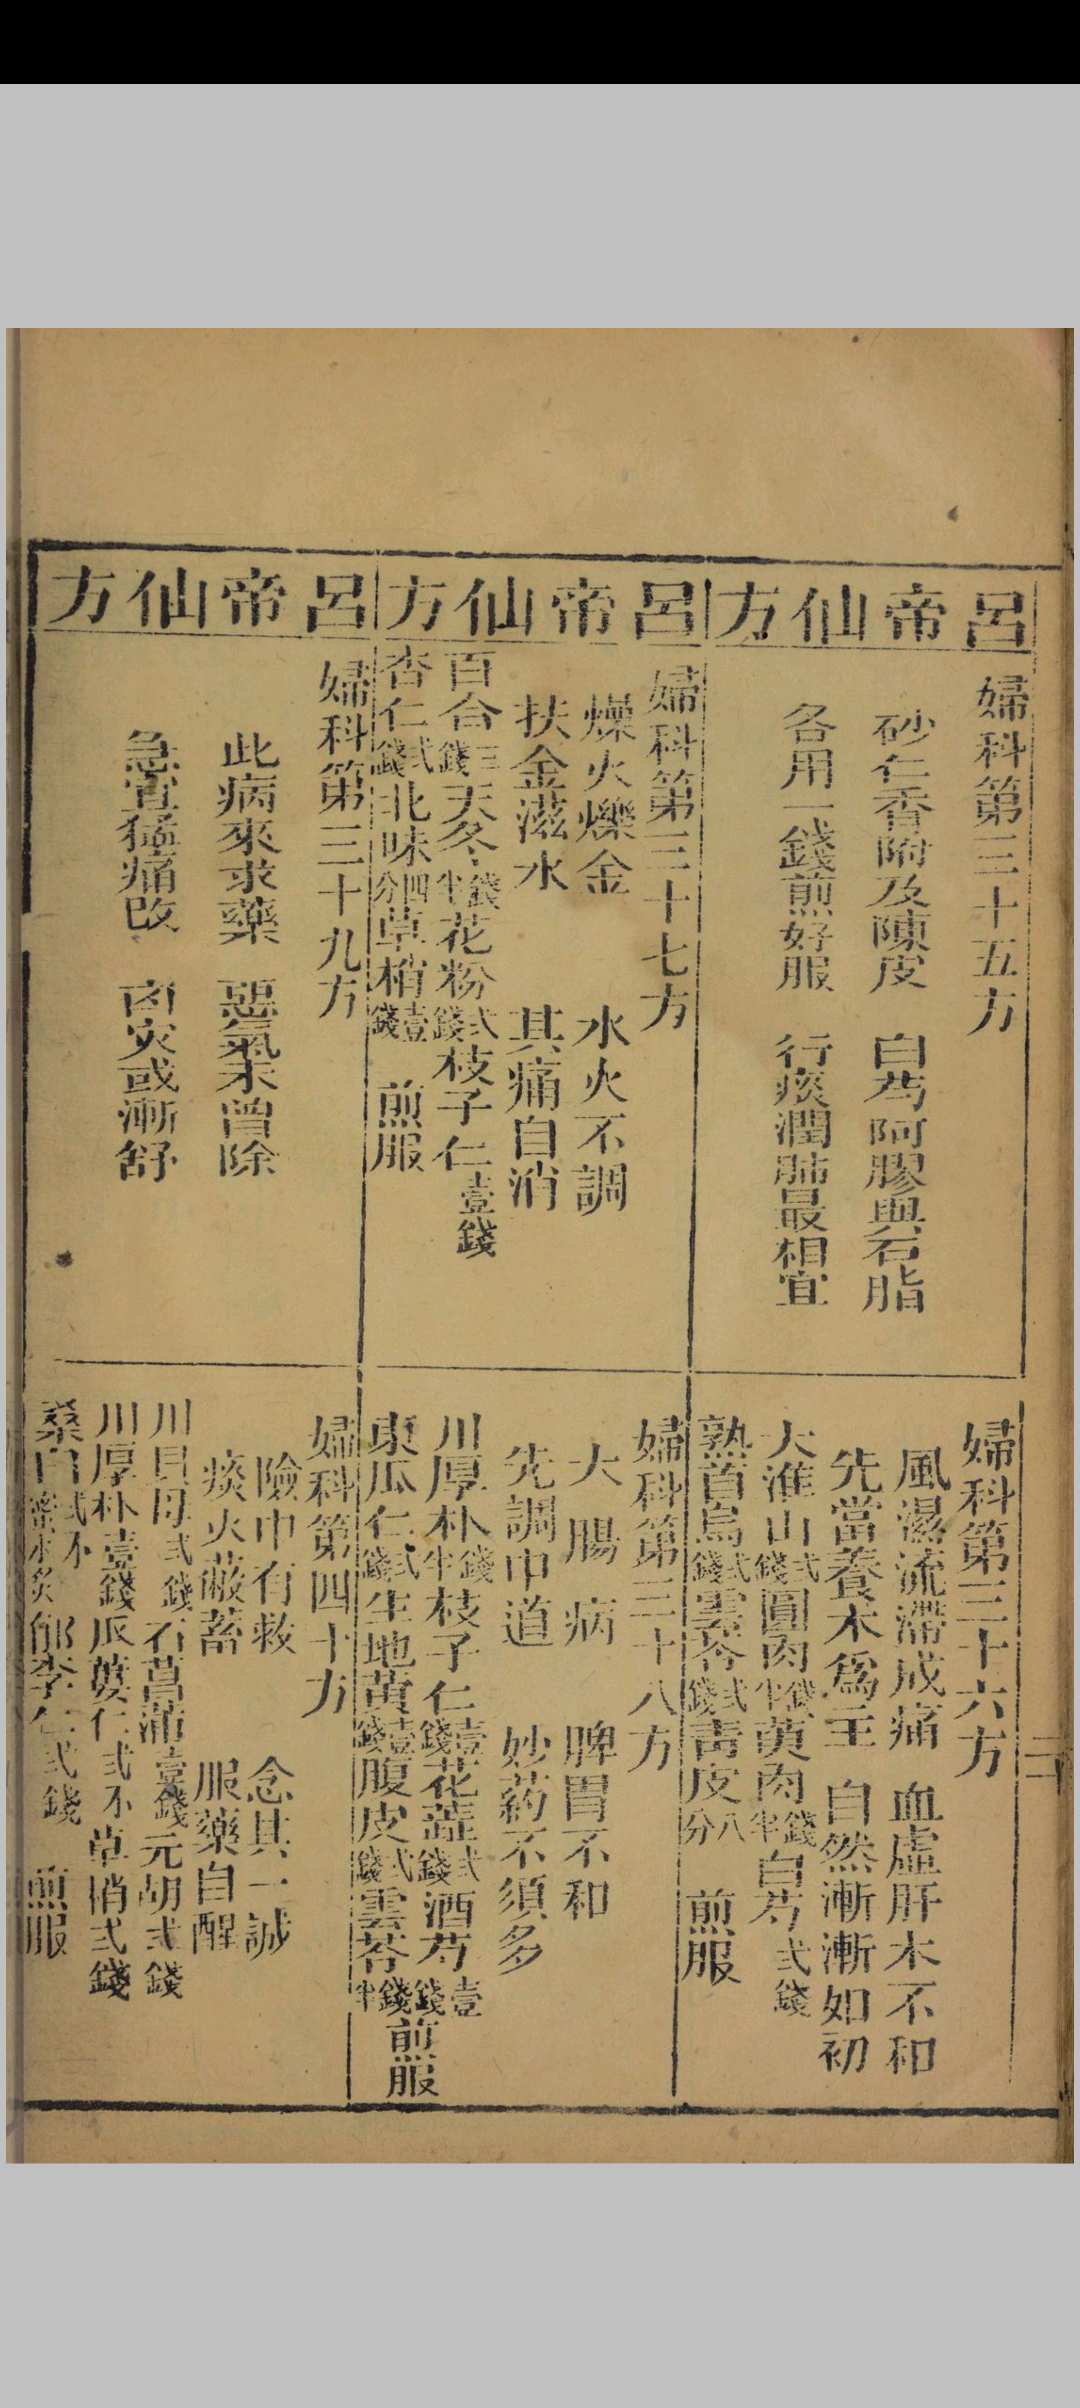 呂帝仙方
婦科第三十五方
砂仁香附及陳皮　白芍阿膠與石脂
各用一錢煎好服　行痰潤肺最相宜
婦科第三十六方
風濕流滯成痛　血虛肝木不和
先當養木為主　自然漸漸如初
大淮山弍錢圓肉錢半萸肉錢半白芍弍錢
熟首烏弍錢雲苓弍錢靑皮八分　煎服
呂帝仙方
婦科第三十七方
燥火爍金　水火不調
扶金滋水　其痛自消
百合三錢天冬錢半花粉弍錢枝子仁壹錢
杏仁弍錢北味四分草梢壹錢　煎服
婦科第三十八方
大腸病　脾胃不和
先調中道　妙药不須多
川厚朴錢半枝子仁壹錢花蕋弍錢酒芍壹錢
東瓜仁弍錢生地黃壹錢腹皮弍錢雲苓錢半煎服
呂帝仙方
婦科第三十九方
此病來求藥　惡氣未曾除
急宜猛痛改　凶灾或漸舒
婦科第四十方
險中有救　念其一誠
痰火蔽蓄　服藥自醒
川貝母弍錢石菖蒲壹錢元胡弍錢
川厚朴壹錢瓜蔞仁弍不草梢弍錢
桑白弍不蜜水炙郁李仁弍錢　煎服
二